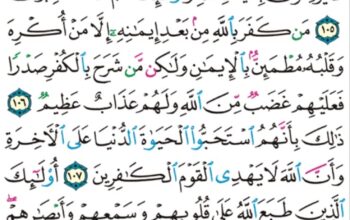 ١٠٥ مَن كَفَرَ بِٱللَّهِ مِنۢ بَعْدِ إِيمَٰنِهِۦٓ إِلَّا مَنْ أُكْرِهَ
وَقَلْبُهُۥ مُطْمَئِنٌّۢ بِٱلْإِيمَٰنِ وَلَٰكِن مَّن شَرَحَ بِٱلْكُفْرِ صَدْرًا
فَعَلَيْهِمْ غَضَبٌ مِّنَ ٱللَّهِ وَلَهُمْ عَذَابٌ عَظِيمٌ ١٠٦
ذَٰلِكَ بِأَنَّهُمُ ٱسْتَحَبُّوا۟ ٱلْحَيَوٰةَ ٱلدُّنْيَا عَلَى ٱلْءَاخِرَةِ
وَأَنَّ ٱللَّهَ لَا يَهْدِى ٱلْقَوْمَ ٱلْكَٰفِرِينَ ١٠٧ أُو۟لَٰٓئِكَ
ٱلَّذِينَ طَبَعَ ٱللَّهُ عَلَىٰ قُلُوبِهِمْ وَسَمْعِهِمْ وَأَبْصَٰرِهِمْ ۖ